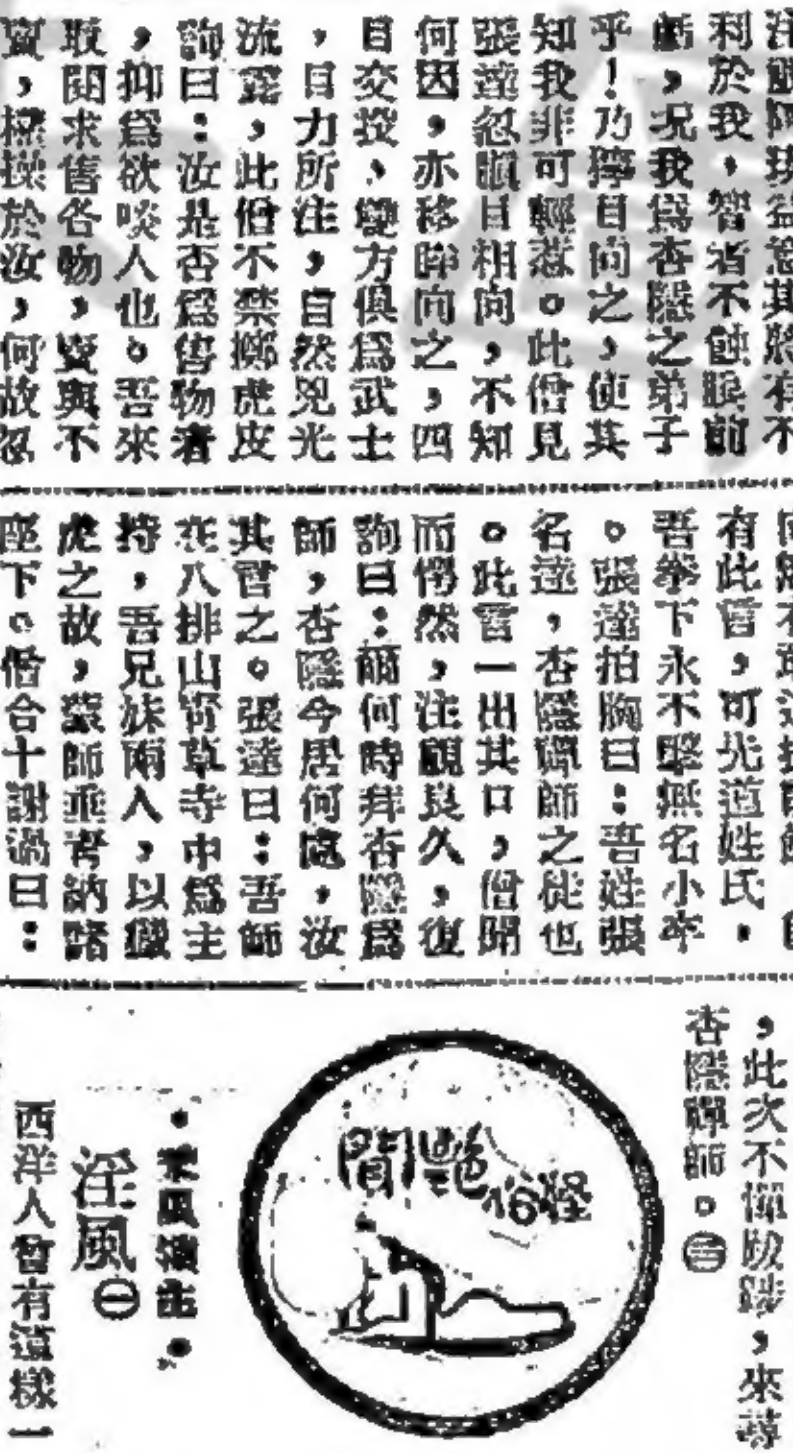 利於我，智者不蝕眼前
虧，況我爲杏隱之弟子
乎！乃獰目向之，使其
知我非可輕惹。此僧見
張達忽瞋目相向，不知
何因，亦移眸向之，四
目交投，雙方俱爲武士
，目力所注，自然兇光
流露，此僧不禁擲虎皮
詢曰：汝是否爲售物者
，抑爲欲啖人也。吾來
取閱求售各物，賣與不
賣，權操於汝，何故忽
有此言，可先道姓氏，
吾拳下永不擊無名小卒
。張達拍胸曰：吾姓張
名達，杏隱禪師之徒也
。此言一出其口，僧聞
而愕然，注觀良久，復
詢曰：爾何時拜杏隱爲
師，杏隱今居何處，汝
其言之。張達曰：吾師
在八排山寶草寺中爲主
持，吾兄妹兩人，以獵
虎之故，蒙師垂青納諸
座下。僧合十謝過曰：
，此次不憚跋涉，來尋
杏隱禪師。㊂
怪俗艷聞
淫風㊀
西洋人曾有這樣一